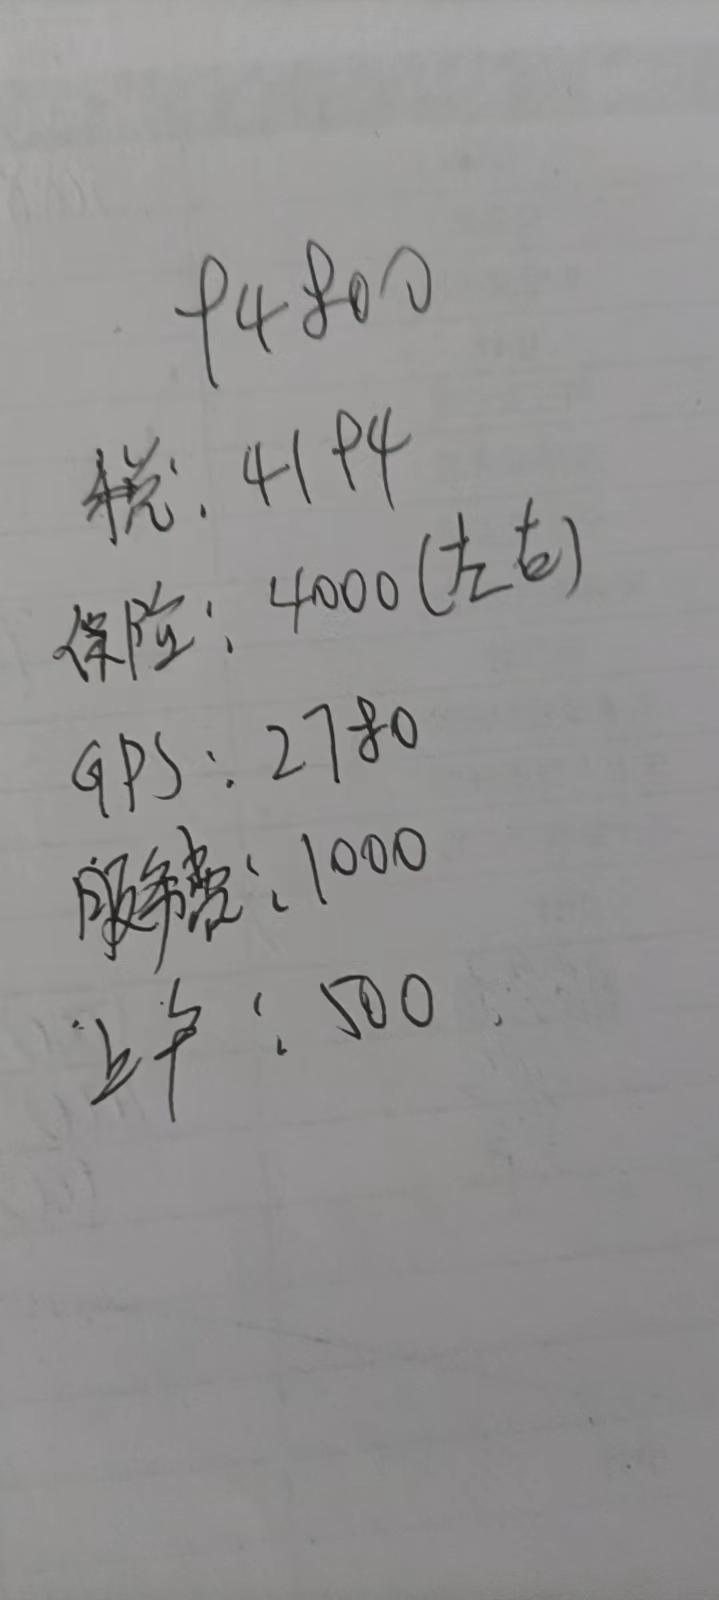 94800
税:4194
保险:4000(左右)
GPS:2780
服务费:1000
上户:500